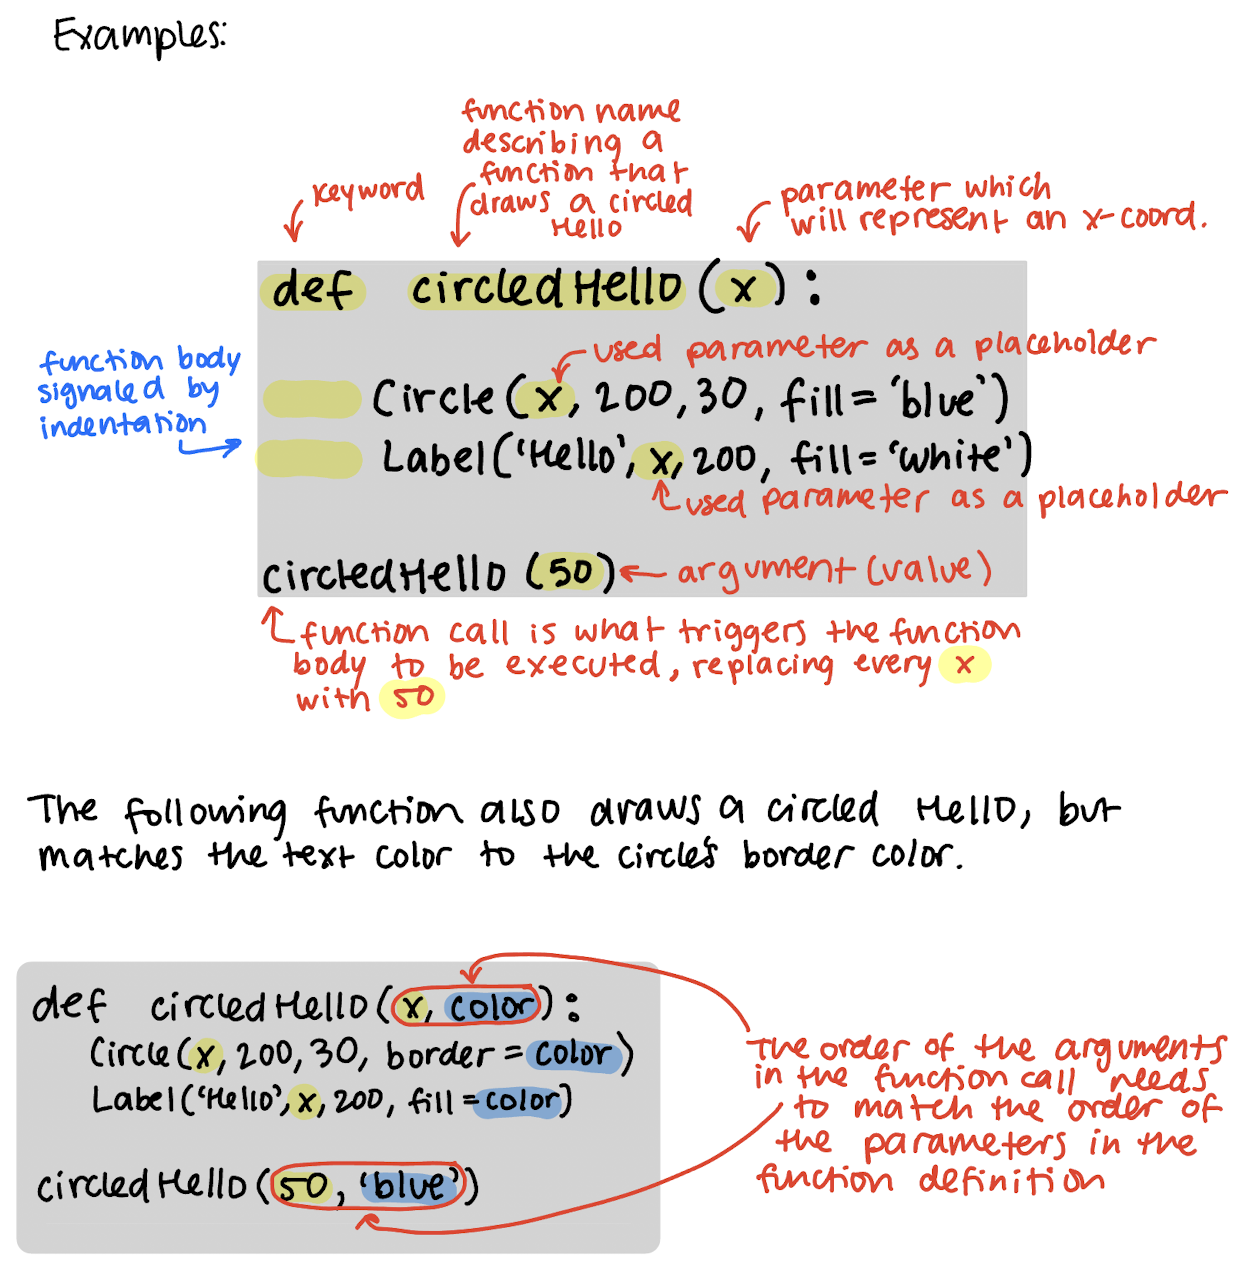 Examples:
function name
describing a
function that
draws a circled
Hello
keyword
parameter which
will represent an x-coord.
def circledHello (x):
function body
signaled by
indentation
used parameter as a placeholder
Circle(x, 200, 30, fill = 'blue')
Label('Hello', x, 200, fill = 'white')
used parameter as a placeholder
circledHello (50)
argument (value)
function call is what triggers the function
body to be executed, replacing every x
with 50
The following function also draws a circled Hello, but
matches the text color to the circle's border color.
def circledHello(x, color):
Circle(x, 200, 30, border = color)
Label('Hello', x, 200, fill = color)
circledHello(50, 'blue')
The order of the arguments
in the function call needs
to match the order of
the parameters in the
function definition